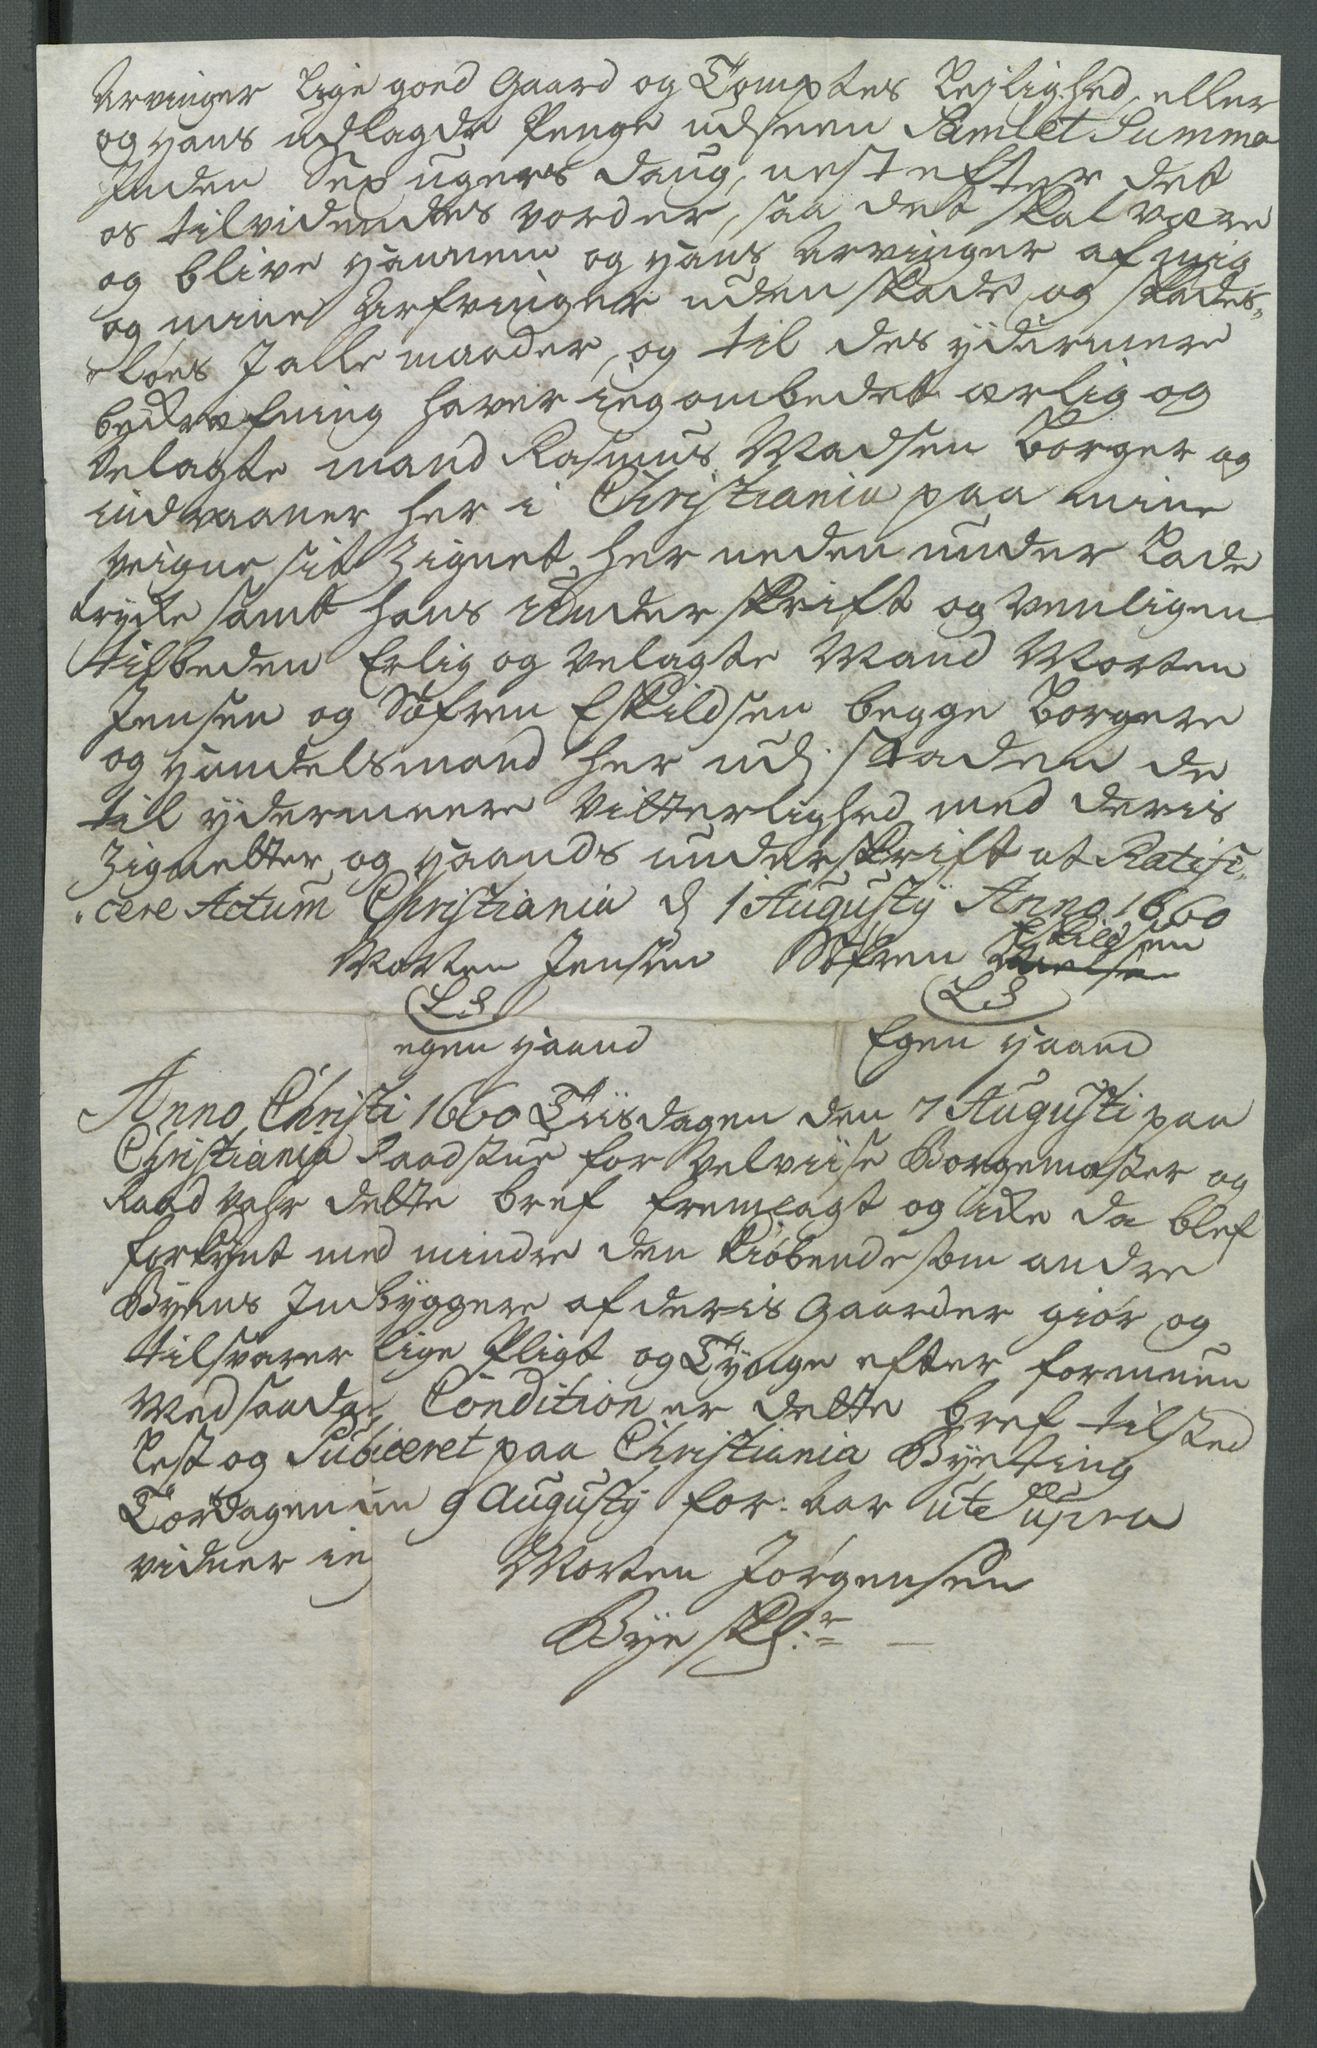 Arvinger Lige goed Gaard og Tomptes Lejlighed, eller
og hans udlagde Penge udj een Samlet Summa
Inden Sex ugers daug, nest efter det
os tilvidendes vorder, saa det skal være
og blive hannem og hans Arvinger af mig
og mine Arfvinger uden skade og skades„
„løes J alle maader, og til des ydermere
bekræfning haver ieg ombedet ærlig og
velagte mand Rasmus Madsen Borger og
indvaaner her i Christiania paa mine
veigne sit Zignet her neden under Lade
trykke samt hans underskrift og venligen
tilbeden Erlig og Velagte Mand Morten
Jensen og Søfren Eskildsen begge Borgere
og handelsmænd her udj staden de
til ydermeere Vitterlighed med deris
Zignetter og haands underskrift at Ratifi„
„cere Actum Christiania d 1 Augusty Anno 1660
Morten Jensen Søfren Eskildsen
LS LS
egen haand Egen haand
Anno Christi 1660 Tiisdagen den 7 Augusti paa
Christiania Raadstue for Velviise Borgemæster og
Raad vahr dette bref fremlagt og icke da blef
forkynt med mindre den kiøbende som andre
Byens Indbyggere af deris Gaarder giør og
tilsvarer lige Pligt og Tynge efter formuen
Med saadan Condition er dette bref tilsted
Lest og Publiceret paa Christiania Byeting
Torsdagen den 9 Augusty for: aar ute supra
vidner ieg Morten Jørgensen
Bye Skr: